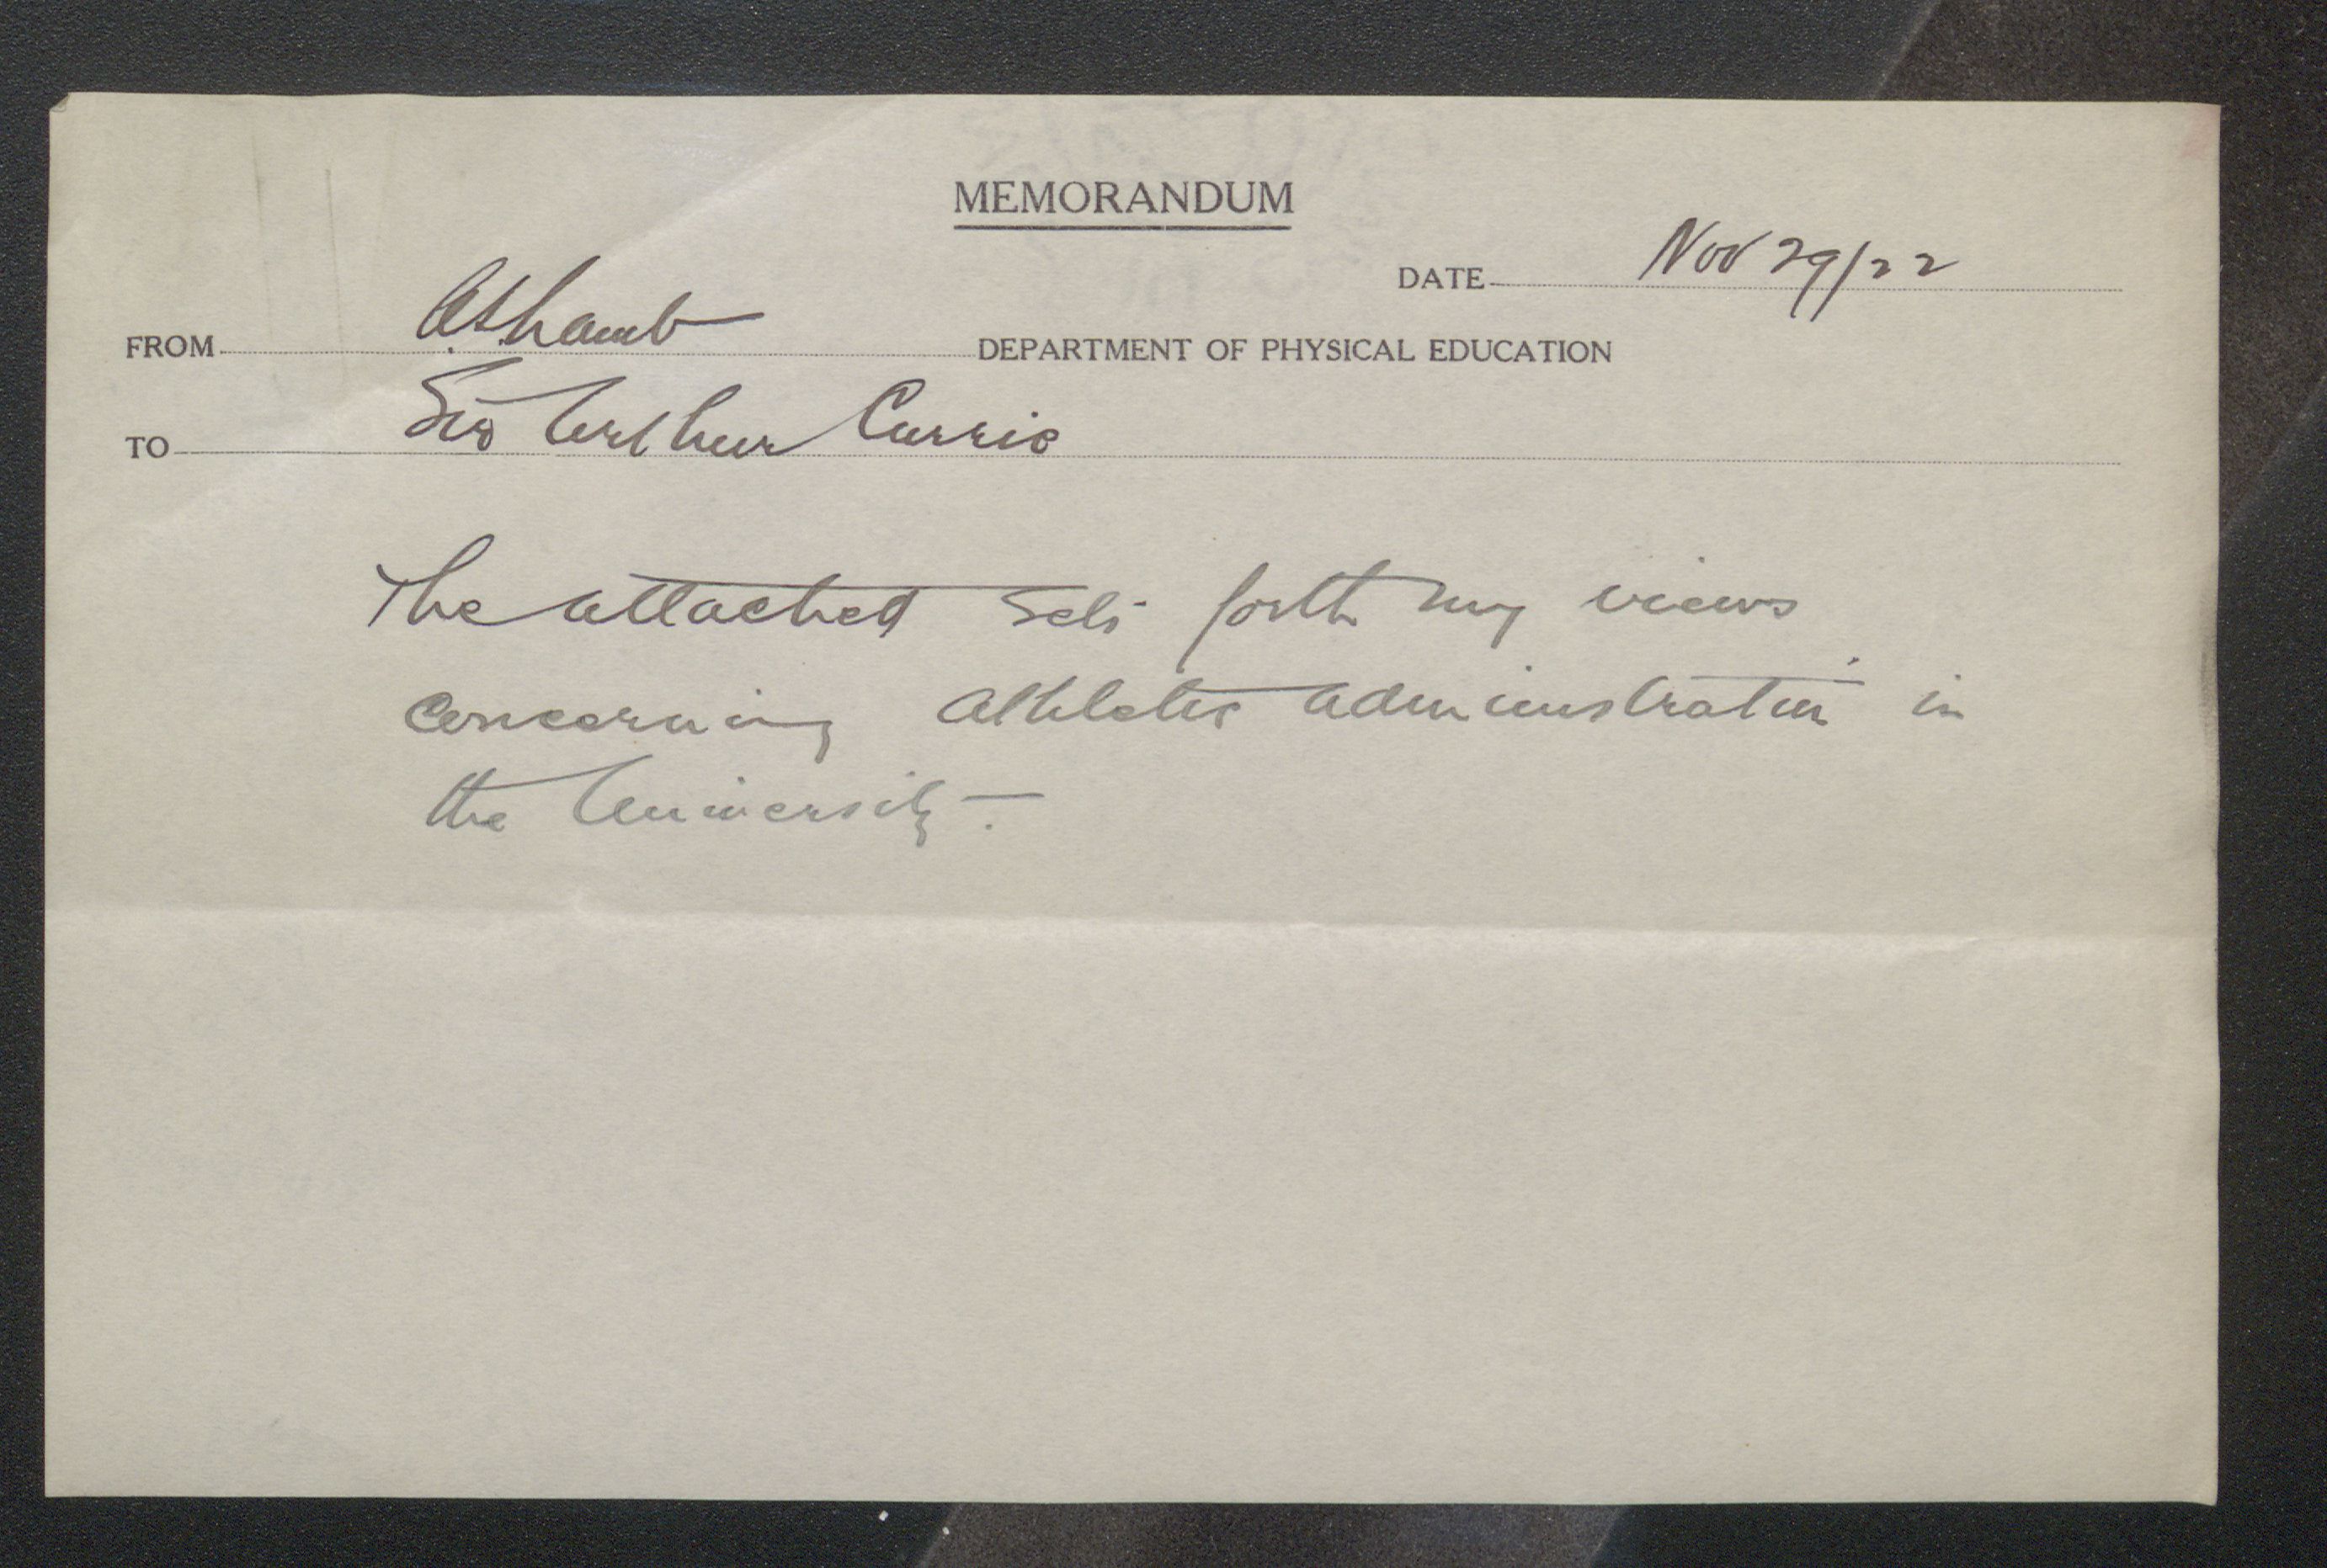 MEMORANDUM
DATE Nov 29/22
FROM A.S. Lamb DEPARTMENT OF PHYSICAL EDUCATION
TO Sir Arthur Currie
The attached sets forth my views
concerning athletic administration in
the University.—